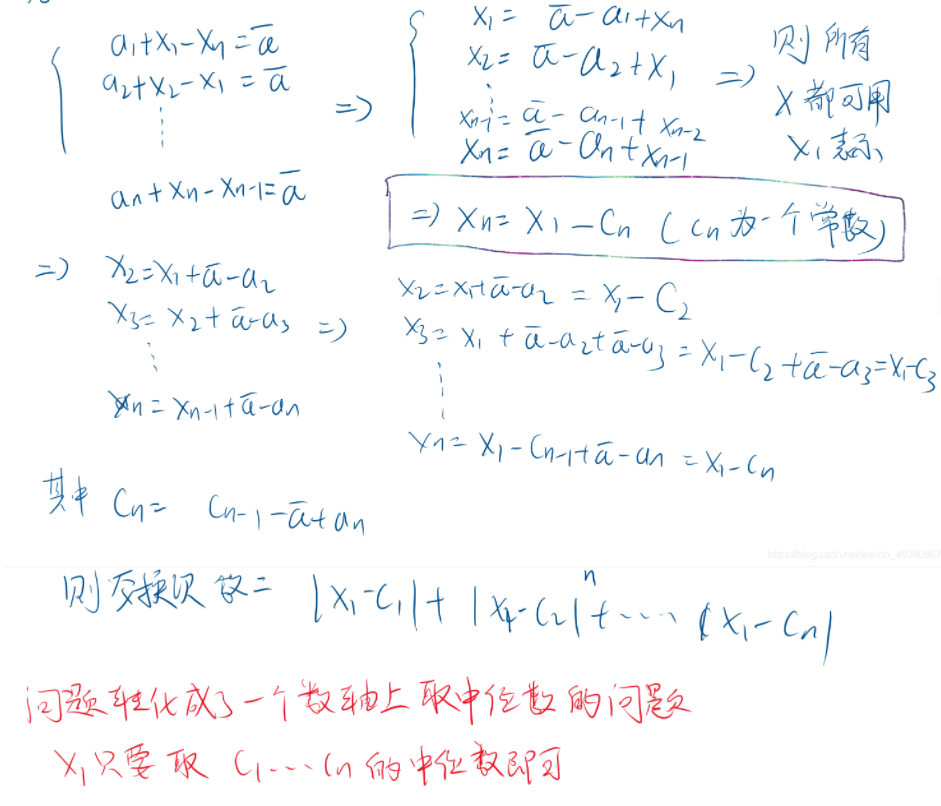 a₁+x₁-xₙ=ā
a₂+x₂-x₁=ā
⋮
aₙ+xₙ-xₙ₋₁=ā
=>
x₁= ā-a₁+xₙ
x₂= ā-a₂+x₁
⋮
xₙ₋₁=ā-aₙ₋₁+xₙ₋₂
xₙ= ā-aₙ+xₙ₋₁
=> 则所有
x都可用
x₁表示
=> xₙ= x₁-Cₙ (Cₙ为一个常数)
=> x₂=x₁+ā-a₂
x₃= x₂+ā-a₃ =>
⋮
xₙ=xₙ₋₁+ā-aₙ
x₂=x₁+ā-a₂ = x₁-C₂
x₃= x₁+ā-a₂+ā-a₃=x₁-C₂+ā-a₃=x₁-C₃
⋮
xₙ= x₁-Cₙ₋₁+ā-aₙ =x₁-Cₙ
其中 Cₙ= Cₙ₋₁-ā+aₙ
则交换次数= |x₁-C₁|+|x₁-C₂|+⋯|x₁-Cₙ|
n
问题转化成了一个数轴上取中位数的问题
x₁只要取 C₁⋯Cₙ的中位数即可